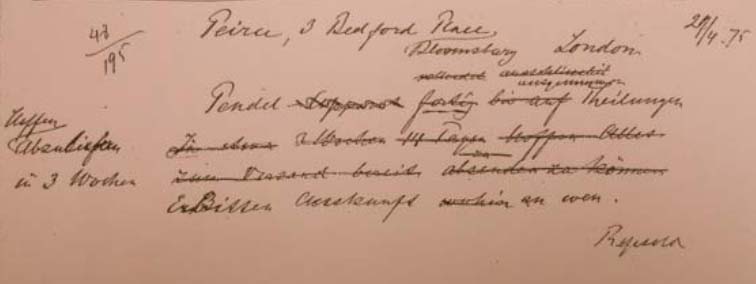 48/195
Peirce, 3 Bedford Place,
20/4.75
Bloomsbury London
vollendet
ausgenommen
Pendel fertig bis auf Theilungen
Hoffen
Abzuliefern
in 3 Wochen
In etwa 2 Wochen 14 Tagen Hoffen Alles
zum Versand bereit absenden zu können
Erbitten Auskunft wohin an wen.
Repsold